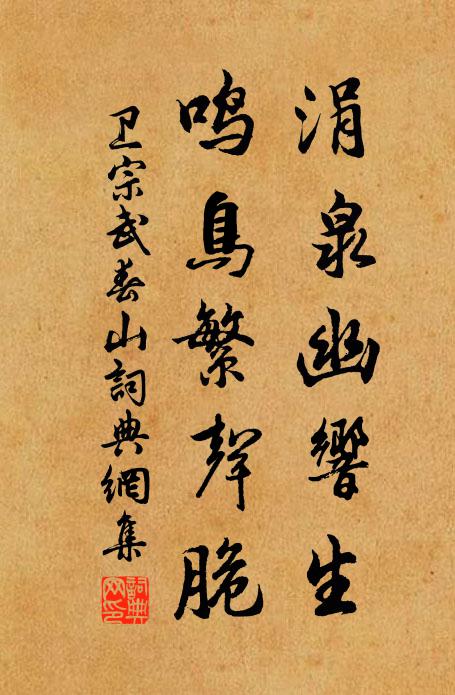 涓泉幽響生
鳴鳥繁聲脆
卫宗武春山詞典網集
詞典網印